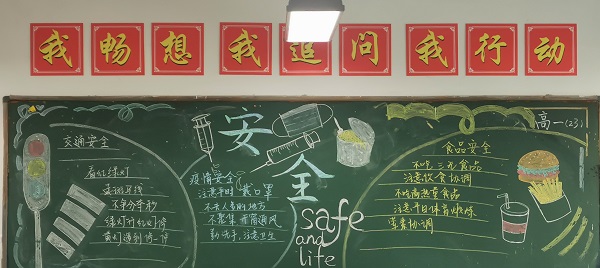 我畅想 我追问 我行动
高一(23)
安全
safe
and
life
交通安全
看红绿灯
走斑马线
不争分夺秒
绿灯行红灯停
黄灯遇到停一停
疫情安全
注意平时戴口罩
不去人多的地方
不聚集 开窗通风
勤洗手,注意卫生
食品安全
不吃三无食品
注意饮食协调
不吃高热量食品
注意平日体育锻炼
营养协调